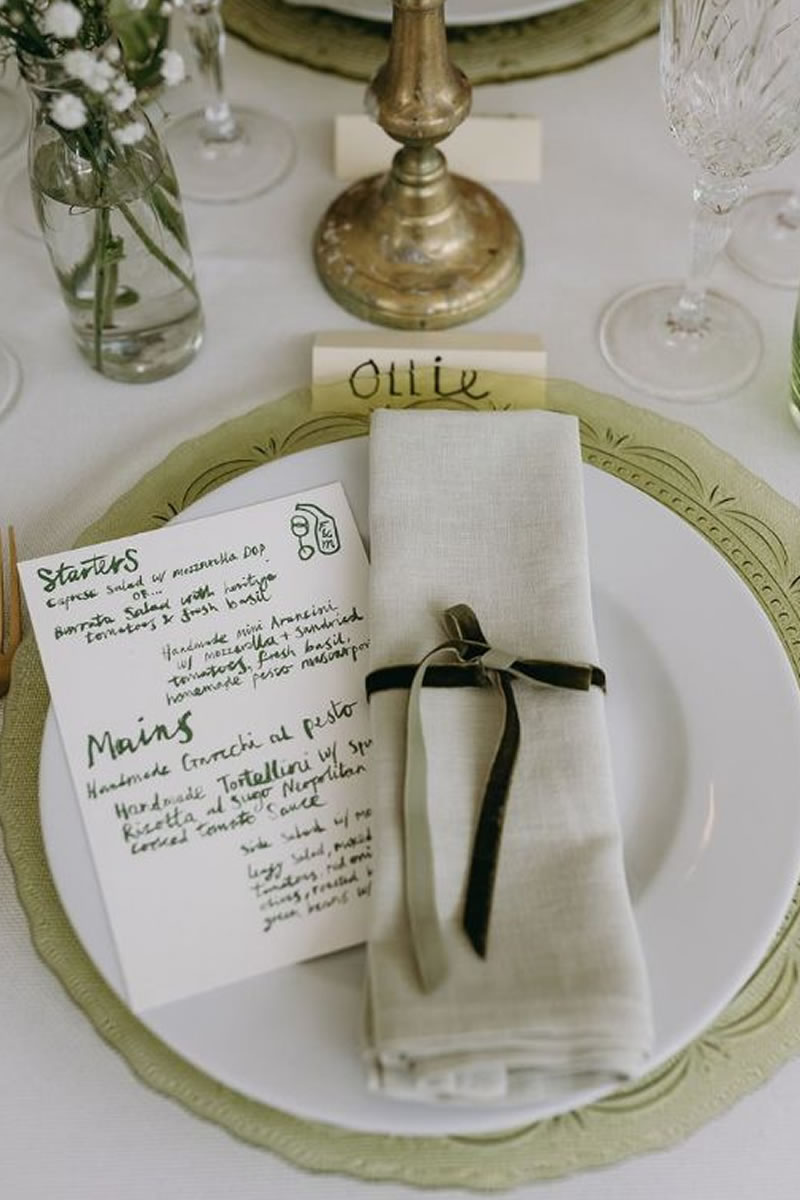 Ollie
Starters
Caprese Salad w/ mozzarella DOP
OR...
Burrata Salad with heritage
tomatoes & fresh basil
Handmade Mini Arancini
w/ mozzarella + sundried
tomatoes, fresh basil,
homemade pesto
Mains
Handmade al pesto
Handmade Tortellini w/
Risotto al Sugo Neopolitan
cooked tomato Sauce
Side Salad w/
leafy Salad,
tomatoes, red
roasted
green beans w/